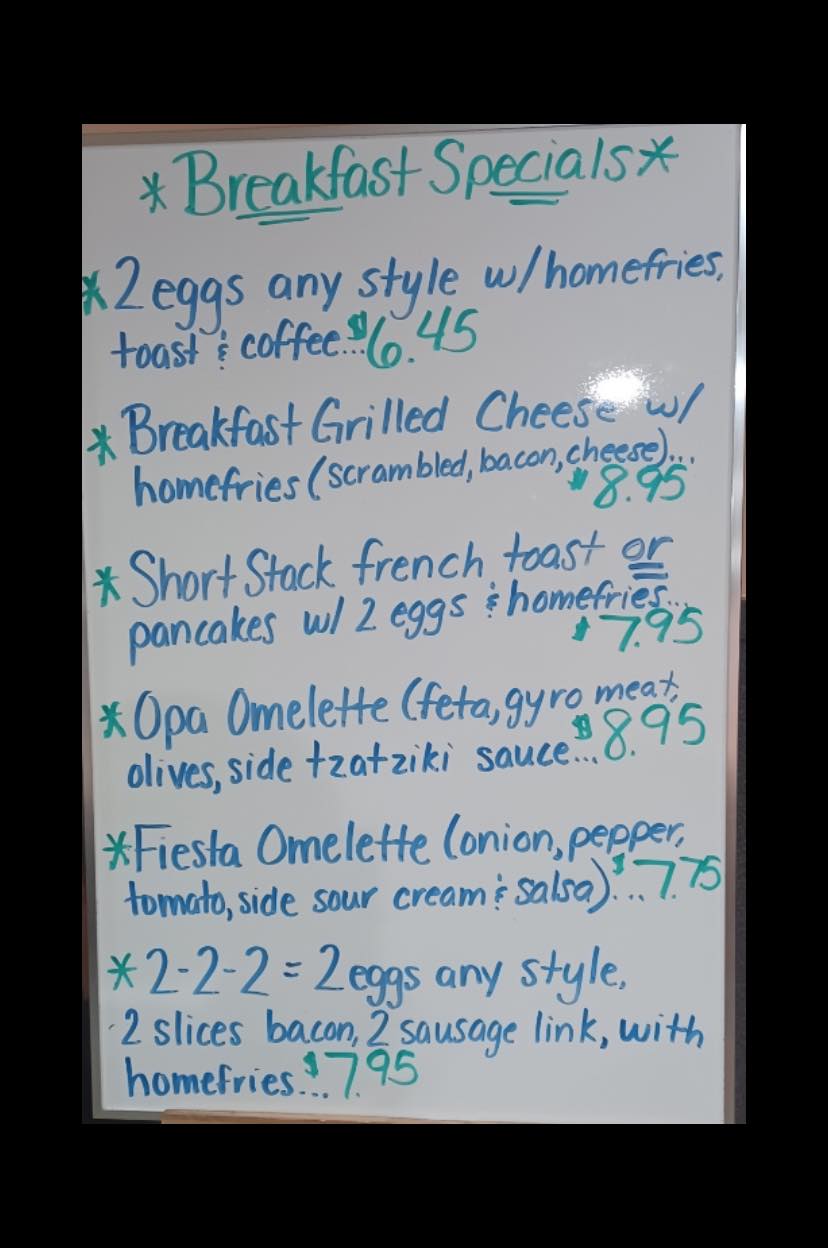 *Breakfast Specials*
*2 eggs any style w/homefries,
toast & coffee...$6.45
*Breakfast Grilled Cheese w/
homefries (scrambled, bacon, cheese)...
$8.95
*Short Stack french toast or
pancakes w/ 2 eggs & homefries...
$7.95
*Opa Omelette (feta, gyro meat,
olives, side tzatziki sauce...$8.95
*Fiesta Omelette (onion, pepper,
tomato, side sour cream & salsa)...$7.75
*2-2-2 = 2 eggs any style,
2 slices bacon, 2 sausage link, with
homefries...$7.95